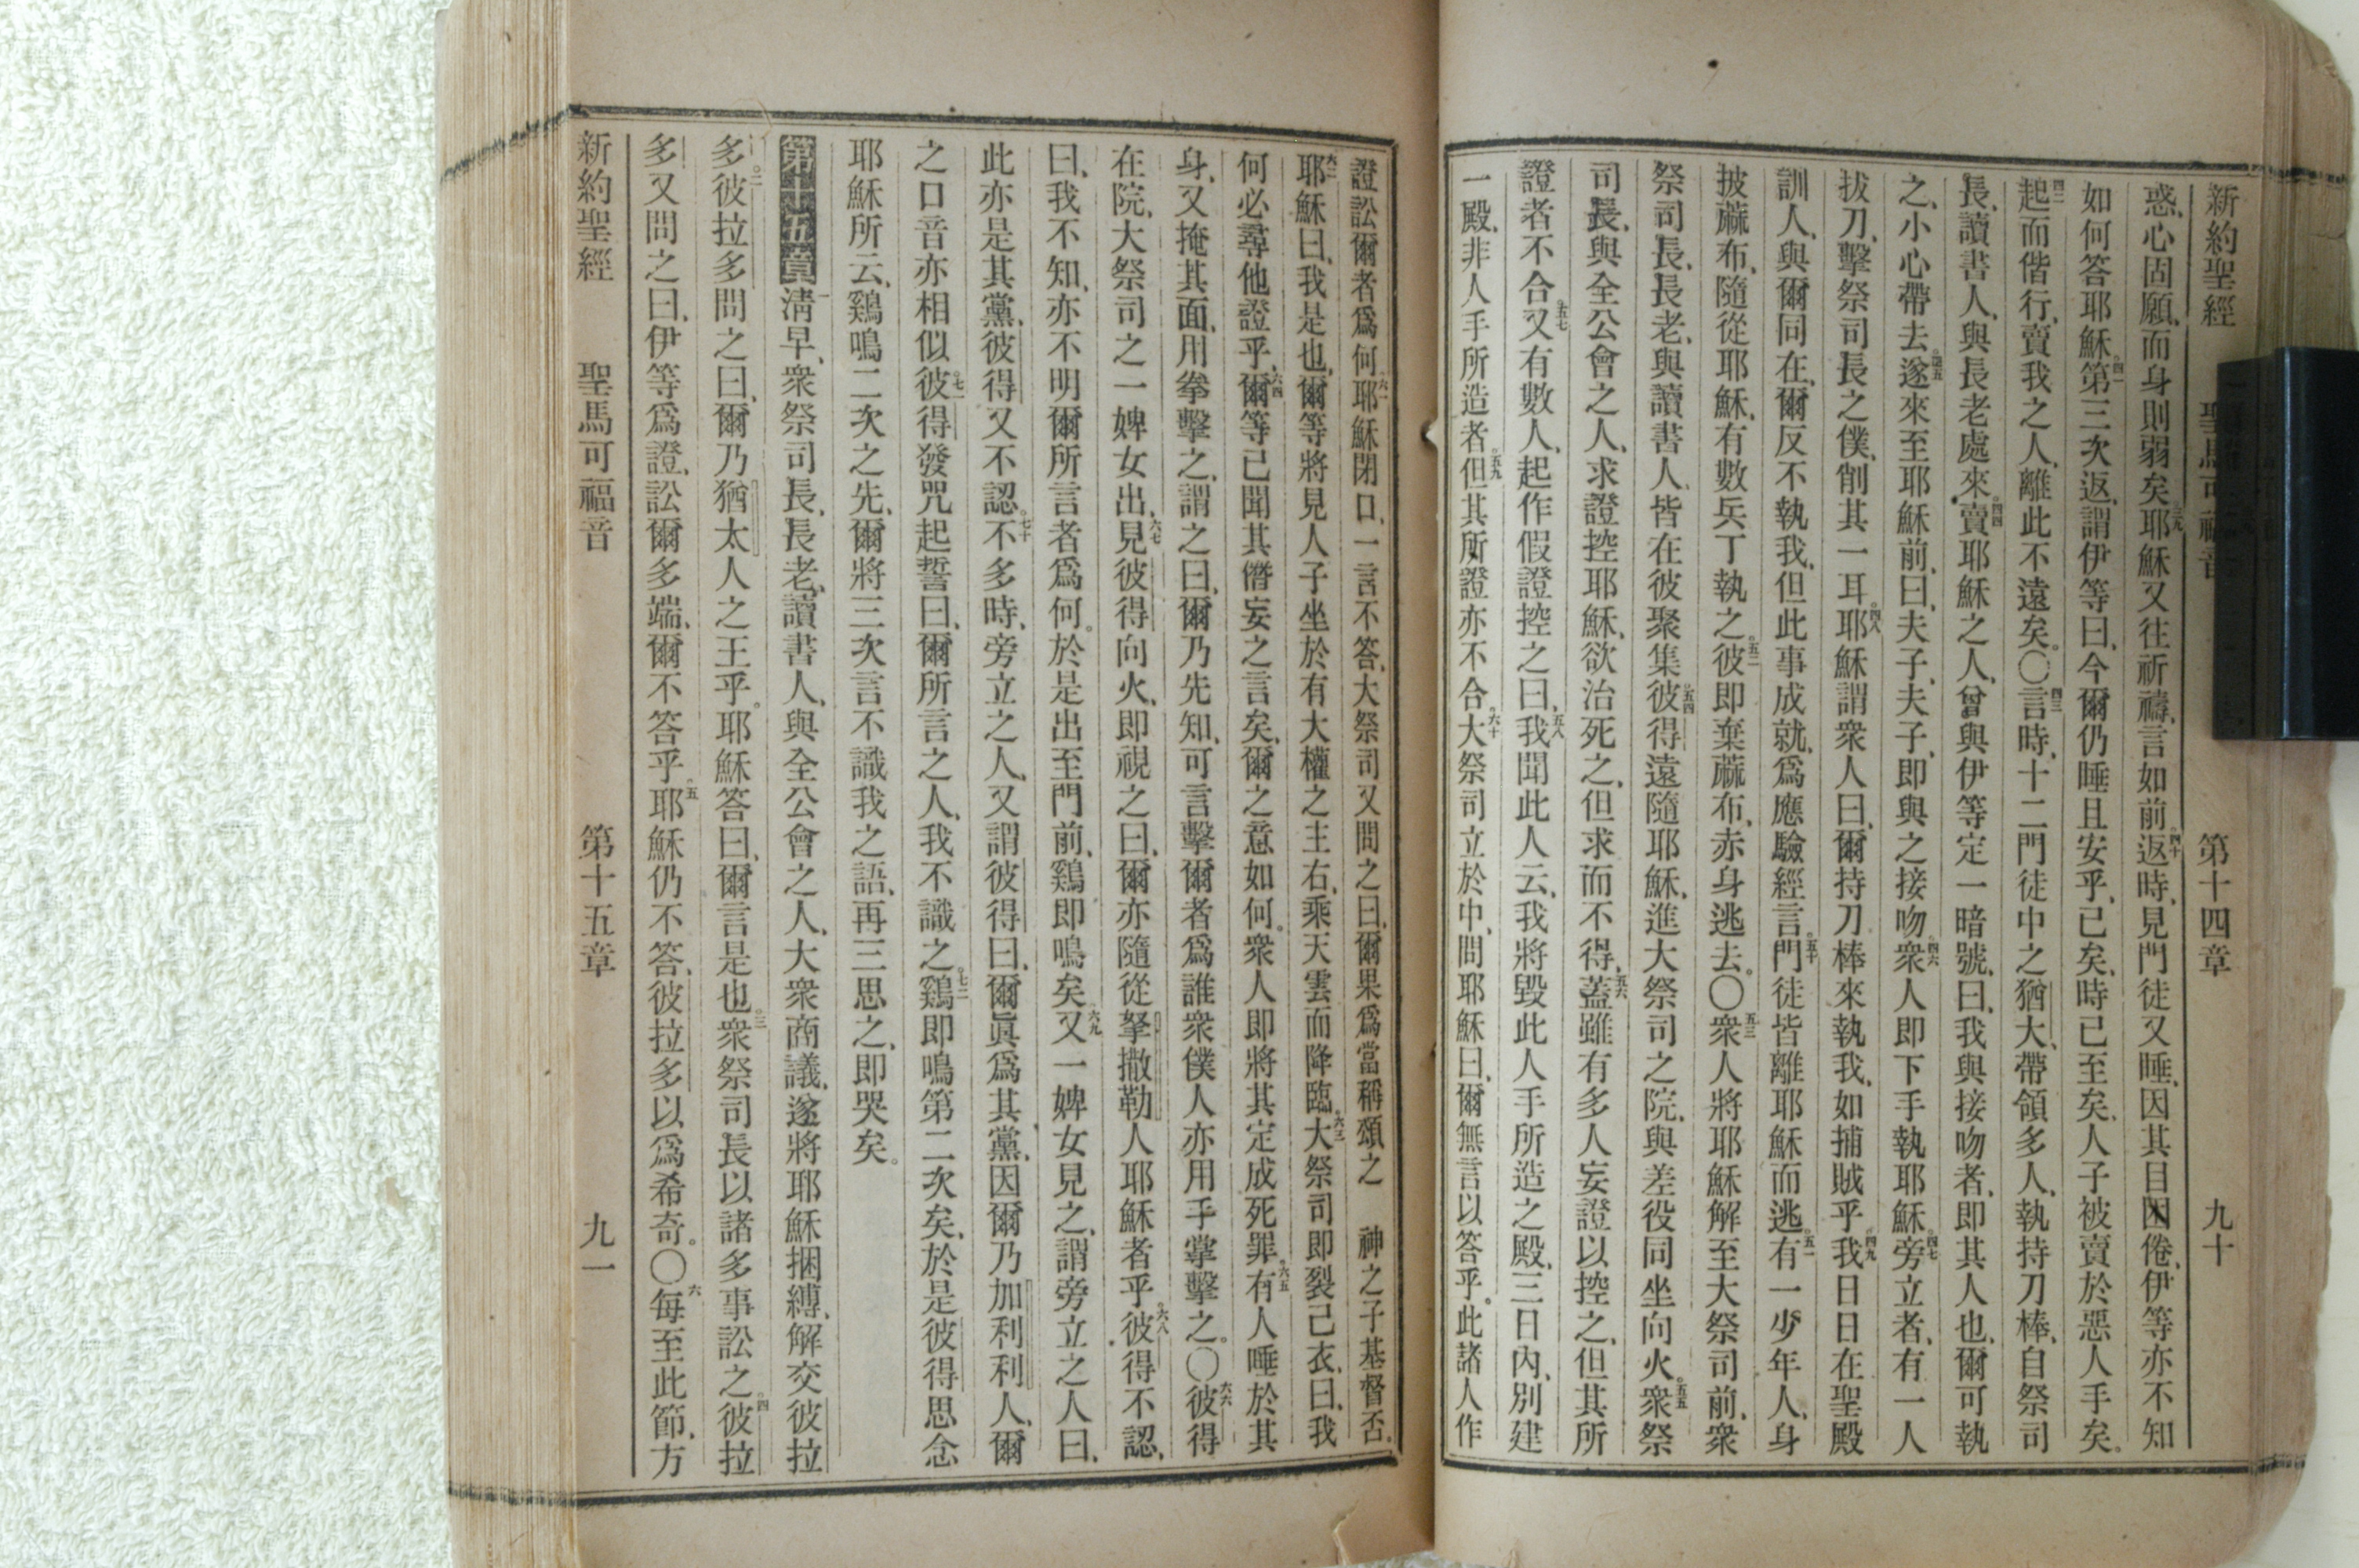 新約聖經 聖馬可福音 第十四章 九十
惑、心固願、而身則弱矣。三九耶穌又往祈禱、言如前。四十返時、見門徒又睡、因其目困倦、伊等亦不知
如何答耶穌。四一第三次返、謂伊等曰、今爾仍睡且安乎、已矣、時已至矣、人子被賣於惡人手矣。
四二起而偕行、賣我之人、離此不遠矣。〇四三言時、十二門徒中之猶大、帶領多人、執持刀棒、自祭司
長、讀書人、與長老處來。四四賣耶穌之人、曾與伊等定一暗號、曰、我與接吻者、即其人也、爾可執
之、小心帶去。四五遂來至耶穌前、曰、夫子、夫子、即與之接吻。四六衆人即下手執耶穌。四七旁立者、有一人
拔刀、擊祭司長之僕、削其一耳。四八耶穌謂衆人曰、爾持刀棒來執我、如捕賊乎。四九我日日在聖殿
訓人、與爾同在、爾反不執我、但此事成就、爲應驗經言。五十門徒皆離耶穌而逃。五一有一少年人、身
披蔴布、隨從耶穌、有數兵丁執之。五二彼即棄蔴布、赤身逃去。〇五三衆人將耶穌解至大祭司前、衆
祭司長、長老、與讀書人、皆在彼聚集。五四彼得遠隨耶穌、進大祭司之院、與差役同坐向火。五五衆祭
司長、與全公會之人、求證控耶穌、欲治死之、但求而不得、五六蓋雖有多人妄證以控之、但其所
證者不合。五七又有數人、起作假證控之曰、五八我聞此人云、我將毀此人手所造之殿、三日內、別建
一殿、非人手所造者。五九但其所證亦不合。六十大祭司立於中、問耶穌曰、爾無言以答乎。此諸人作
證訟爾者爲何。六一耶穌閉口、一言不答、大祭司又問之曰、爾果爲當稱頌之 神之子基督否。
六二耶穌曰、我是也、爾等將見人子坐於有大權之主右、乘天雲而降臨。六三大祭司即裂己衣、曰、我
何必尋他證乎、六四爾等已聞其僭妄之言矣、爾之意如何。衆人即將其定成死罪。六五有人唾於其
身、又掩其面、用拳擊之、謂之曰、爾乃先知、可言擊爾者爲誰衆僕人亦用手掌擊之。〇六六彼得
在院、大祭司之一婢女出、六七見彼得向火、即視之曰、爾亦隨從拏撒勒人耶穌者乎。六八彼得不認、
曰、我不知、亦不明爾所言者爲何。於是出至門前、鷄即鳴矣。六九又一婢女見之、謂旁立之人曰、
此亦是其黨、彼得又不認。七十不多時、旁立之人、又謂彼得曰、爾眞爲其黨、因爾乃加利利人、爾
之口音亦相似。七一彼得發咒起誓曰、爾所言之人、我不識之。七二鷄即鳴第二次矣、於是彼得思念
耶穌所云、鷄鳴二次之先、爾將三次言不識我之語、再三思之、即哭矣。
第十五章 一清早、衆祭司長、長老、讀書人、與全公會之人、大衆商議、遂將耶穌捆縛、解交彼拉
多。二彼拉多問之曰、爾乃猶太人之王乎。耶穌答曰、爾言是也。三衆祭司長以諸多事訟之。四彼拉
多又問之曰、伊等爲證、訟爾多端、爾不答乎。五耶穌仍不答、彼拉多以爲希奇。〇六每至此節、方
新約聖經 聖馬可福音 第十五章 九一